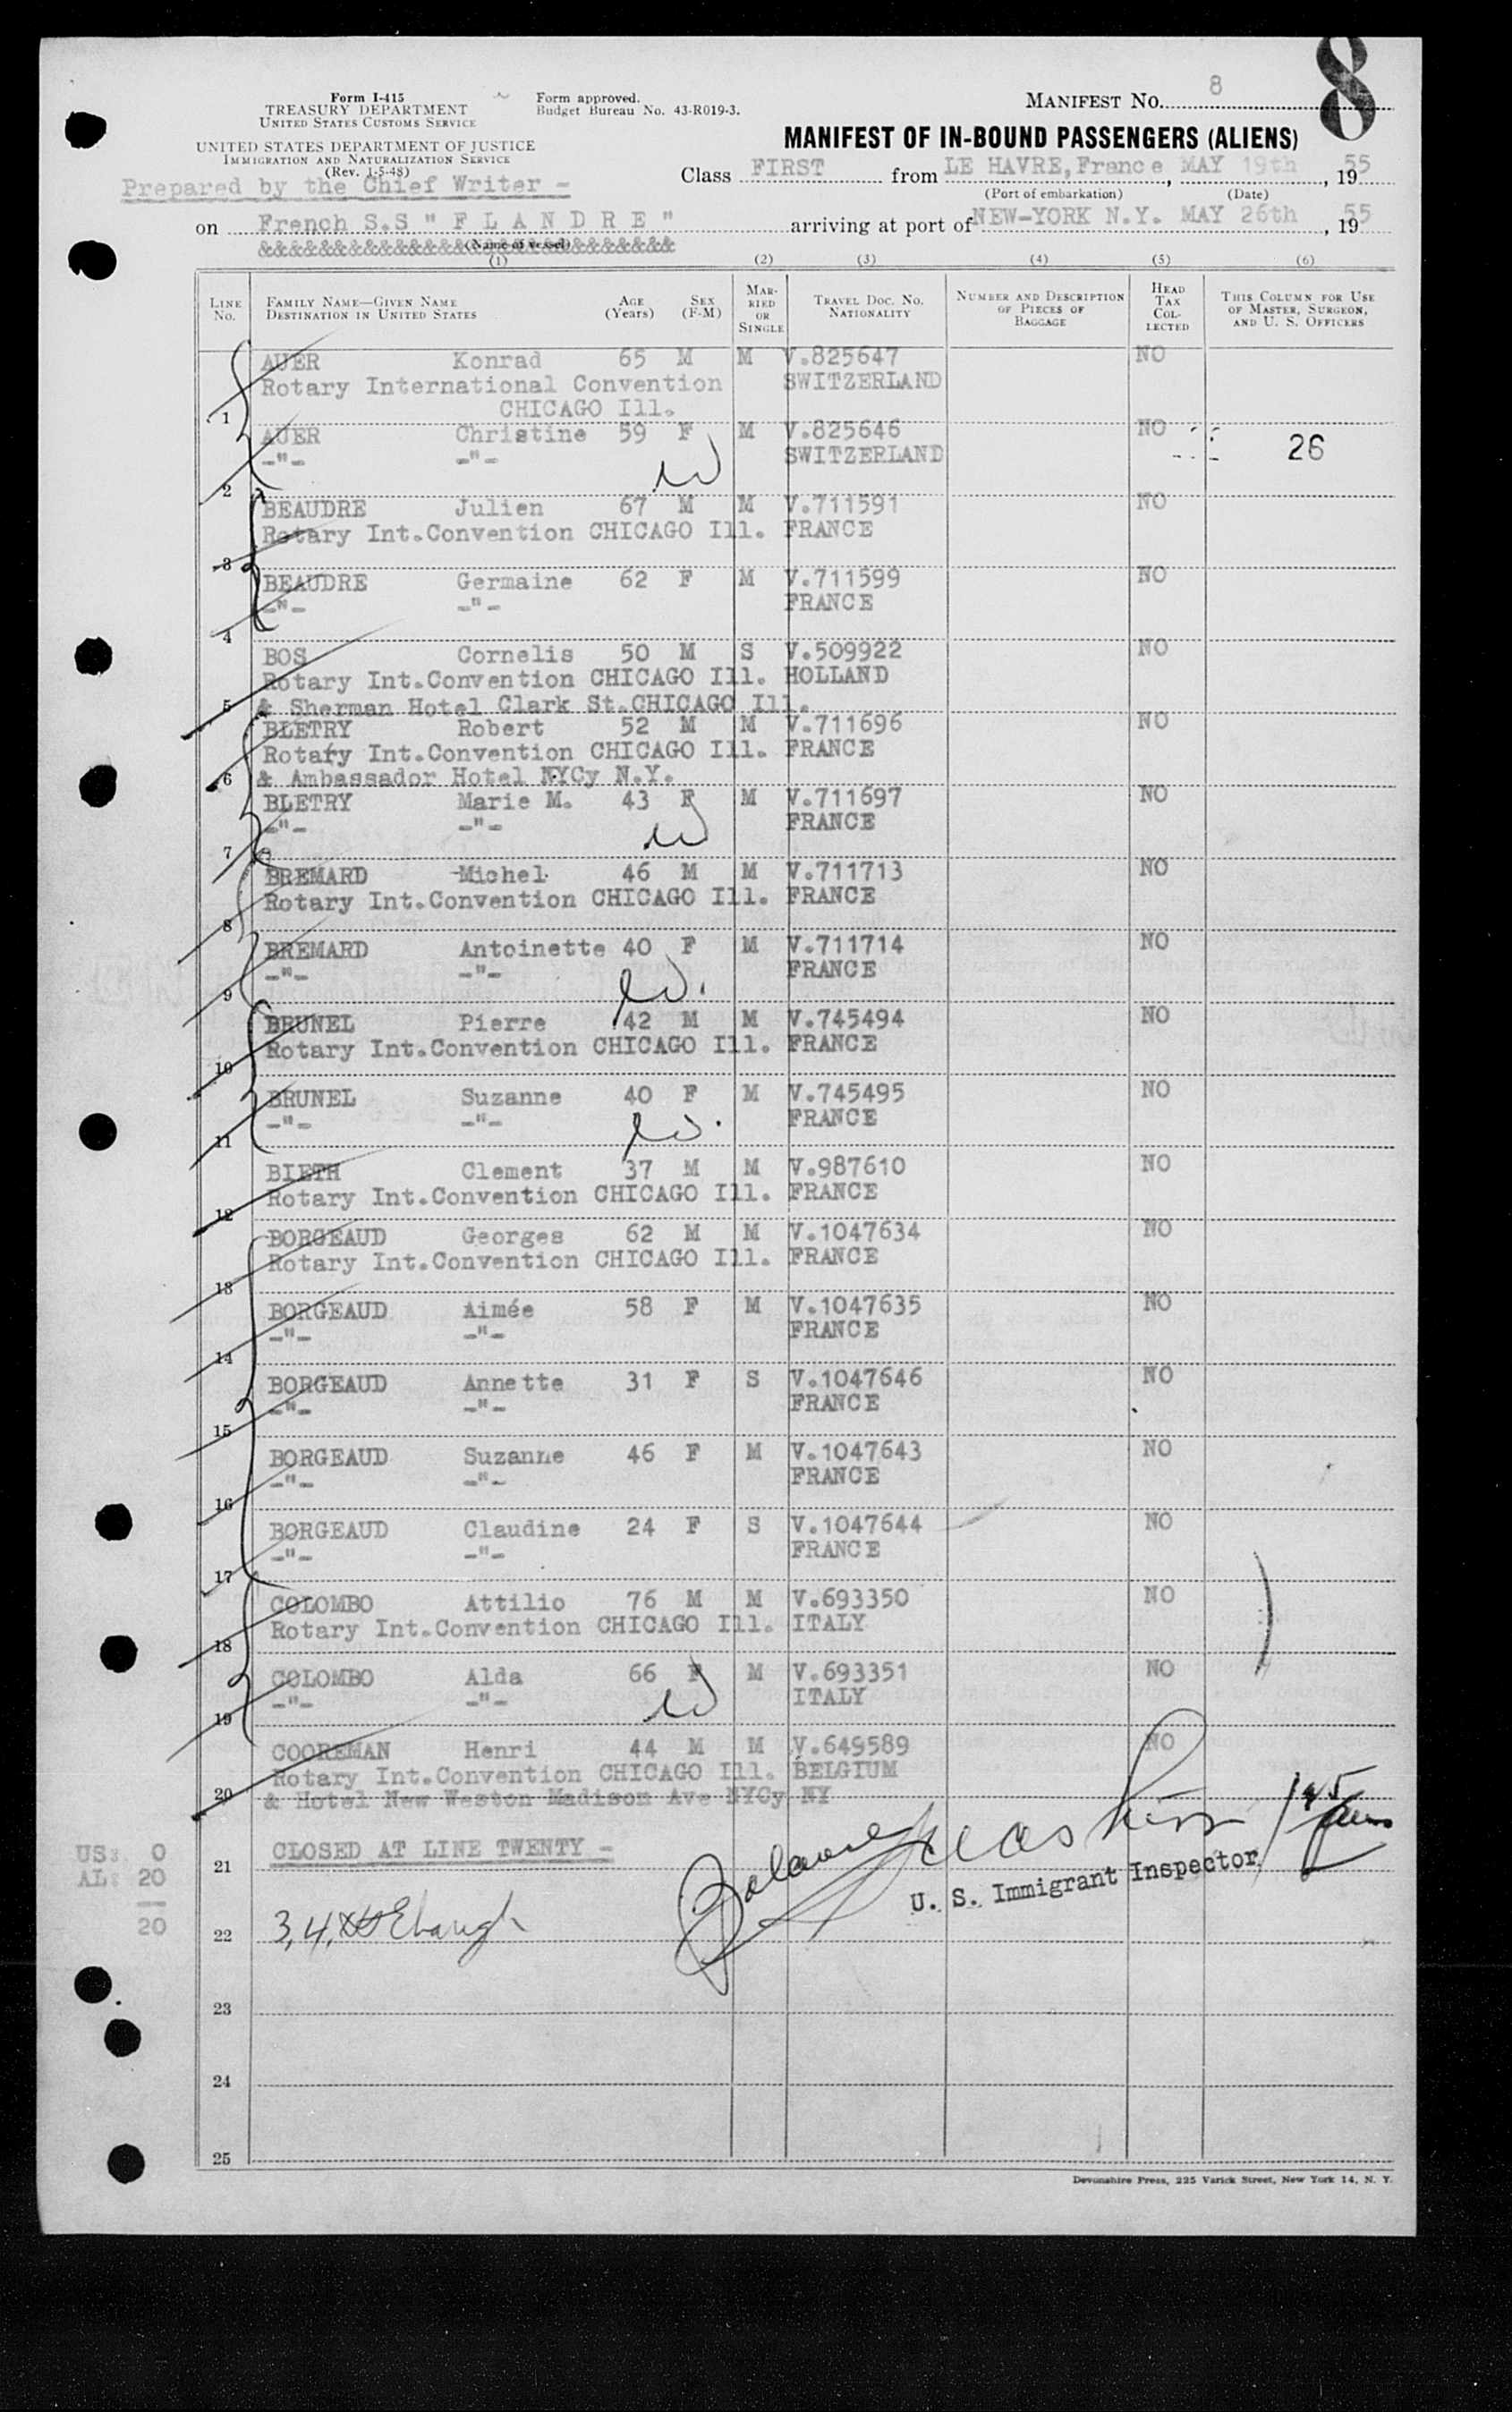 8
Form I-415
TREASURY DEPARTMENT
UNITED STATES CUSTOMS SERVICE
Form approved.
Budget Bureau No. 43-R019-3.
MANIFEST No. 8
UNITED STATES DEPARTMENT OF JUSTICE
IMMIGRATION AND NATURALIZATION SERVICE
(Rev. 1-5-48)
MANIFEST OF IN-BOUND PASSENGERS (ALIENS)
Prepared by the Chief Writer -
Class FIRST from LE HAVRE, France, MAY 19th, 1955
(Port of embarkation) (Date)
on French S.S " F L A N D R E " arriving at port of NEW-YORK N.Y. MAY 26th, 1955
(Name of vessel)
(1) (2) (3) (4) (5) (6)
LINE No. FAMILY NAME—GIVEN NAME DESTINATION IN UNITED STATES AGE (Years) SEX (F-M) MARRIED OR SINGLE TRAVEL DOC. NO. NATIONALITY NUMBER AND DESCRIPTION OF PIECES OF BAGGAGE HEAD TAX COLLECTED THIS COLUMN FOR USE OF MASTER, SURGEON, AND U. S. OFFICERS
AUER Konrad 65 M M V.825647 NO
Rotary International Convention SWITZERLAND
1 CHICAGO Ill.
AUER Christine 59 F M V.825646 NO
-"- -"- SWITZERLAND 26
2
BEAUDRE Julien 67 M M V.711591 NO
Rotary Int.Convention CHICAGO Ill. FRANCE
3
BEAUDRE Germaine 62 F M V.711599 NO
-"- -"- FRANCE
4
BOS Cornelis 50 M S V.509922 NO
Rotary Int.Convention CHICAGO Ill. HOLLAND
5 & Sherman Hotel Clark St.CHICAGO Ill.
BLETRY Robert 52 M M V.711696 NO
Rotary Int.Convention CHICAGO Ill. FRANCE
6 & Ambassador Hotel NYCy N.Y.
BLETRY Marie M. 43 F M V.711697 NO
-"- -"- FRANCE
7
BREMARD Michel 46 M M V.711713 NO
Rotary Int.Convention CHICAGO Ill. FRANCE
8
BREMARD Antoinette 40 F M V.711714 NO
-"- -"- FRANCE
9
BRUNEL Pierre 42 M M V.745494 NO
Rotary Int.Convention CHICAGO Ill. FRANCE
10
BRUNEL Suzanne 40 F M V.745495 NO
-"- -"- FRANCE
11
BIETH Clement 37 M M V.987610 NO
Rotary Int.Convention CHICAGO Ill. FRANCE
12
BORGEAUD Georges 62 M M V.1047634 NO
Rotary Int.Convention CHICAGO Ill. FRANCE
13
BORGEAUD Aimée 58 F M V.1047635 NO
-"- -"- FRANCE
14
BORGEAUD Annette 31 F S V.1047646 NO
-"- -"- FRANCE
15
BORGEAUD Suzanne 46 F M V.1047643 NO
-"- -"- FRANCE
16
BORGEAUD Claudine 24 F S V.1047644 NO
-"- -"- FRANCE
17
COLOMBO Attilio 76 M M V.693350 NO
Rotary Int.Convention CHICAGO Ill. ITALY
18
COLOMBO Alda 66 F M V.693351 NO
-"- -"- ITALY
19
COOREMAN Henri 44 M M V.649589 NO
Rotary Int.Convention CHICAGO Ill. BELGIUM
20 & Hotel New Weston Madison Ave NYCy NY
US: 0 CLOSED AT LINE TWENTY -
AL: 20 21
U. S. Immigrant Inspector
20 22 3,4,
23
24
25
Devonshire Press, 225 Varick Street, New York 14, N. Y.